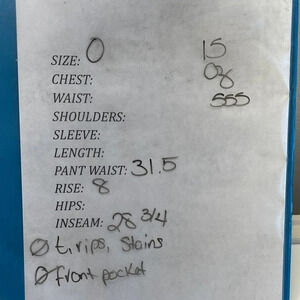 SIZE: 0 15
CHEST: 08
WAIST: 555
SHOULDERS:
SLEEVE:
LENGTH:
PANT WAIST: 31.5
RISE: 8
HIPS:
INSEAM: 28 3/4
Ø t, rips, stains
Ø front pocket